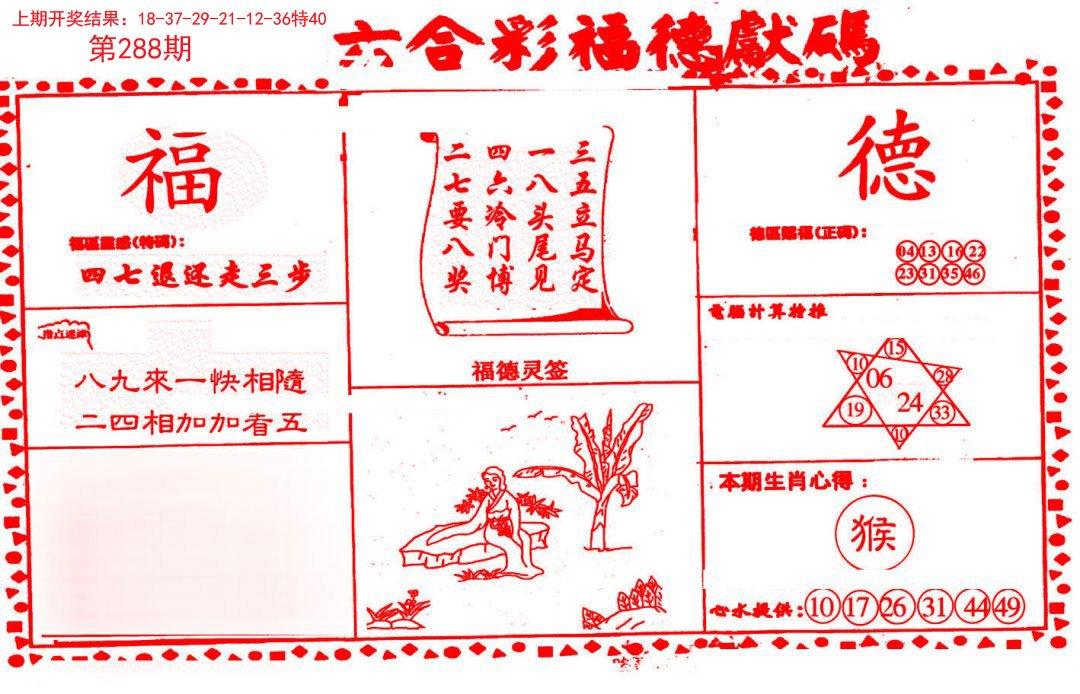 上期开奖结果：18-37-29-21-12-36特40
第288期
六合彩福德獻碼
福
福區靈感(特碼)：
四七退还走三步
指点迷津
八九來一快相隨
二四相加加看五
三五立马定
一八头尾见
四六冷门博
二七要八奖
福德灵签
德
德區賜福(正碼)：
04 13 16 22
23 31 35 46
電腦計算特推
15
10 06 28
19 24 33
10
本期生肖心得：
猴
心水提供：10 17 26 31 44 49